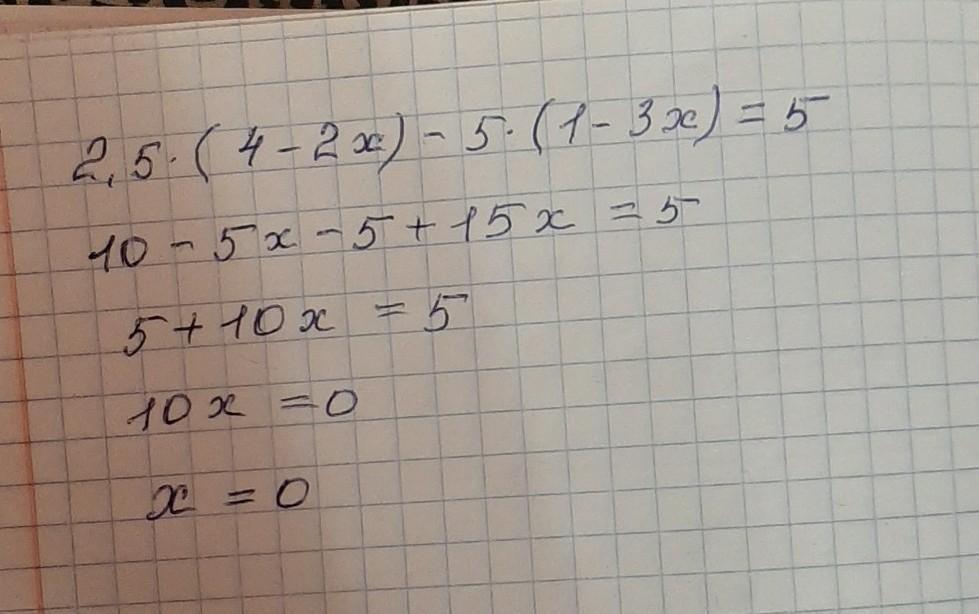 2,5·(4-2x)-5·(1-3x)=5
10-5x-5+15x=5
5+10x=5
10x=0
x=0